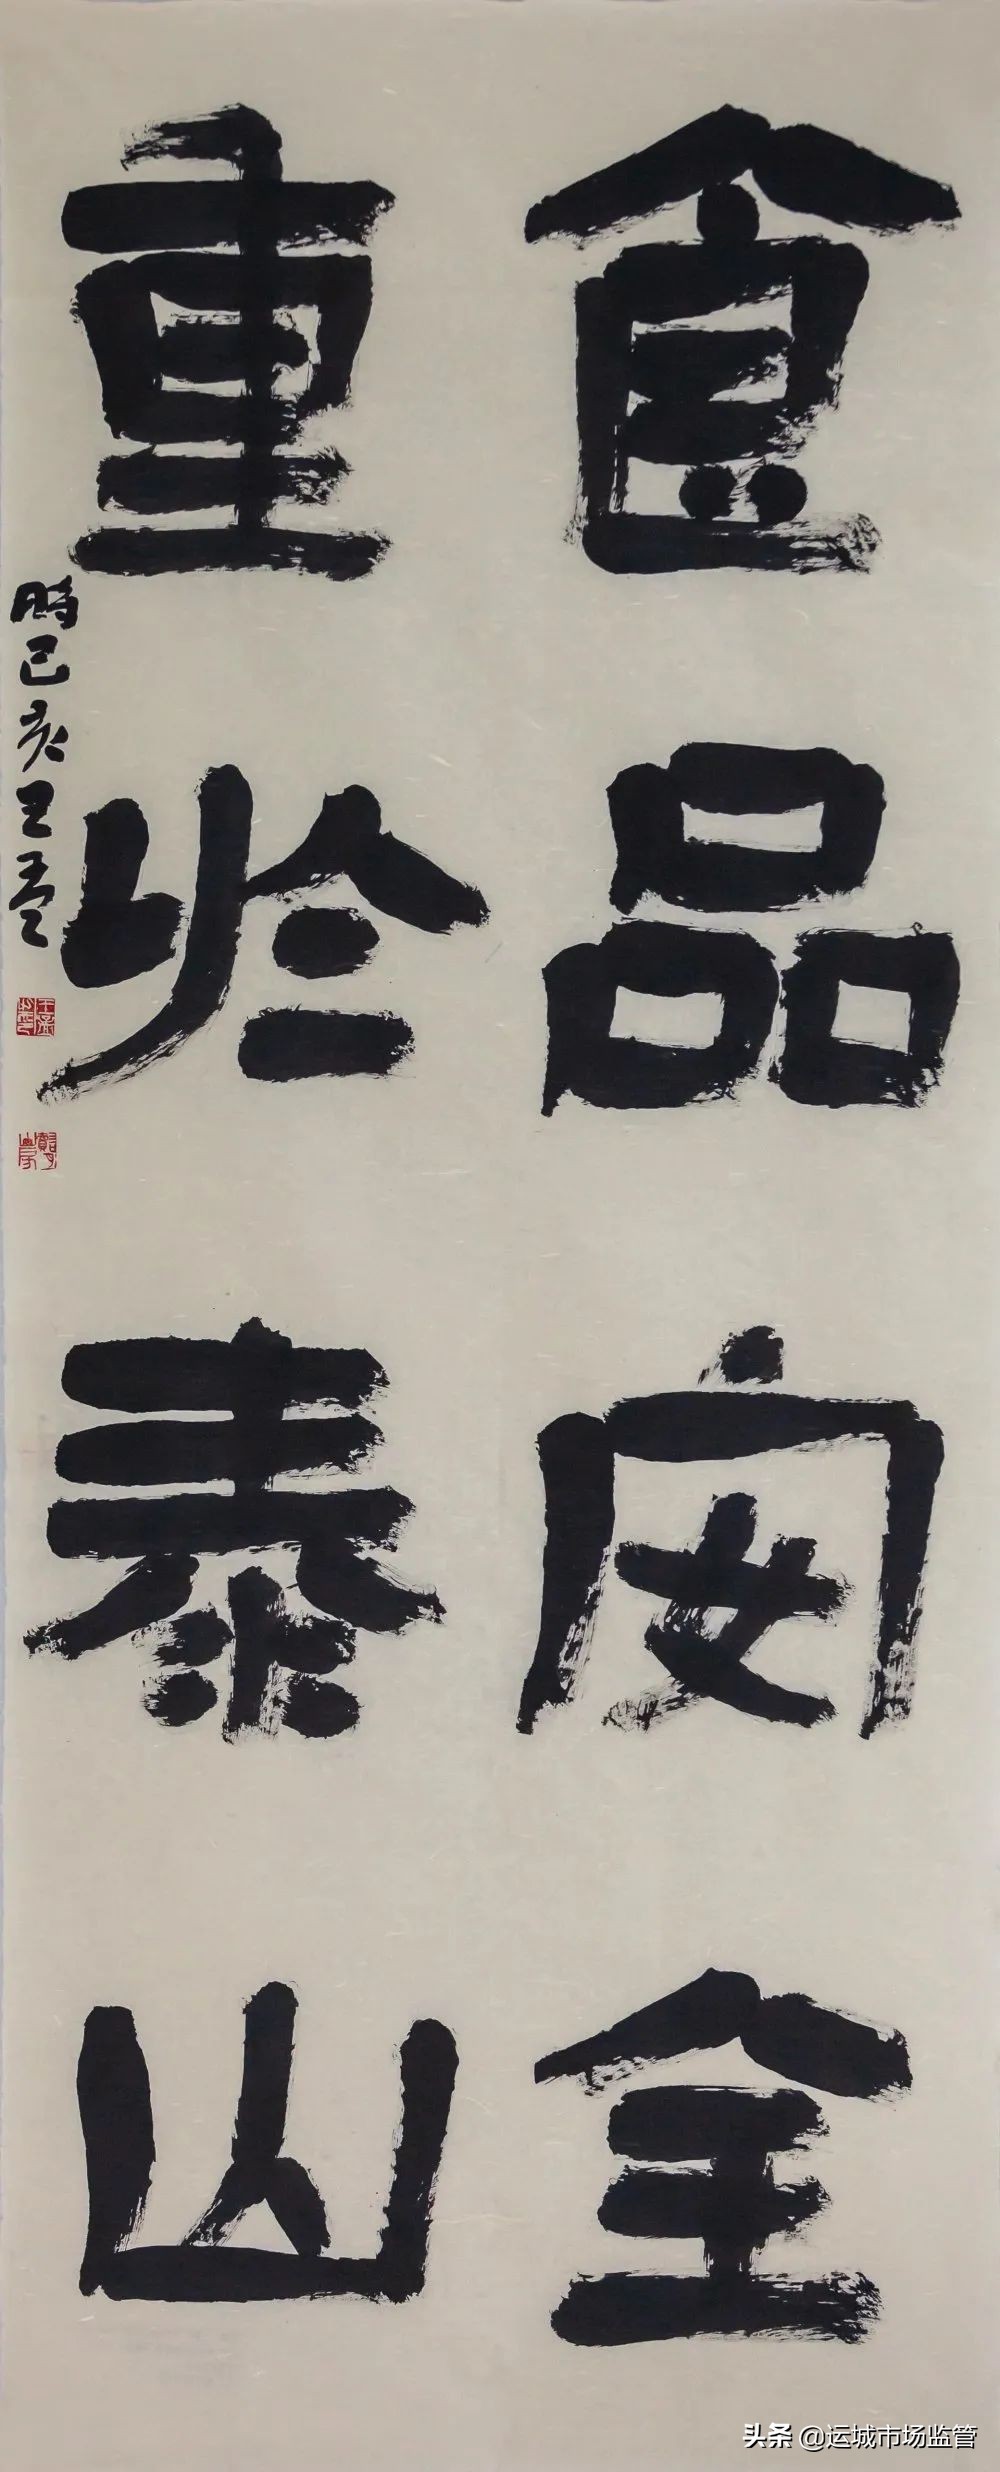 食品安全
重於泰山
時己亥王孟
头条 @运城市场监管